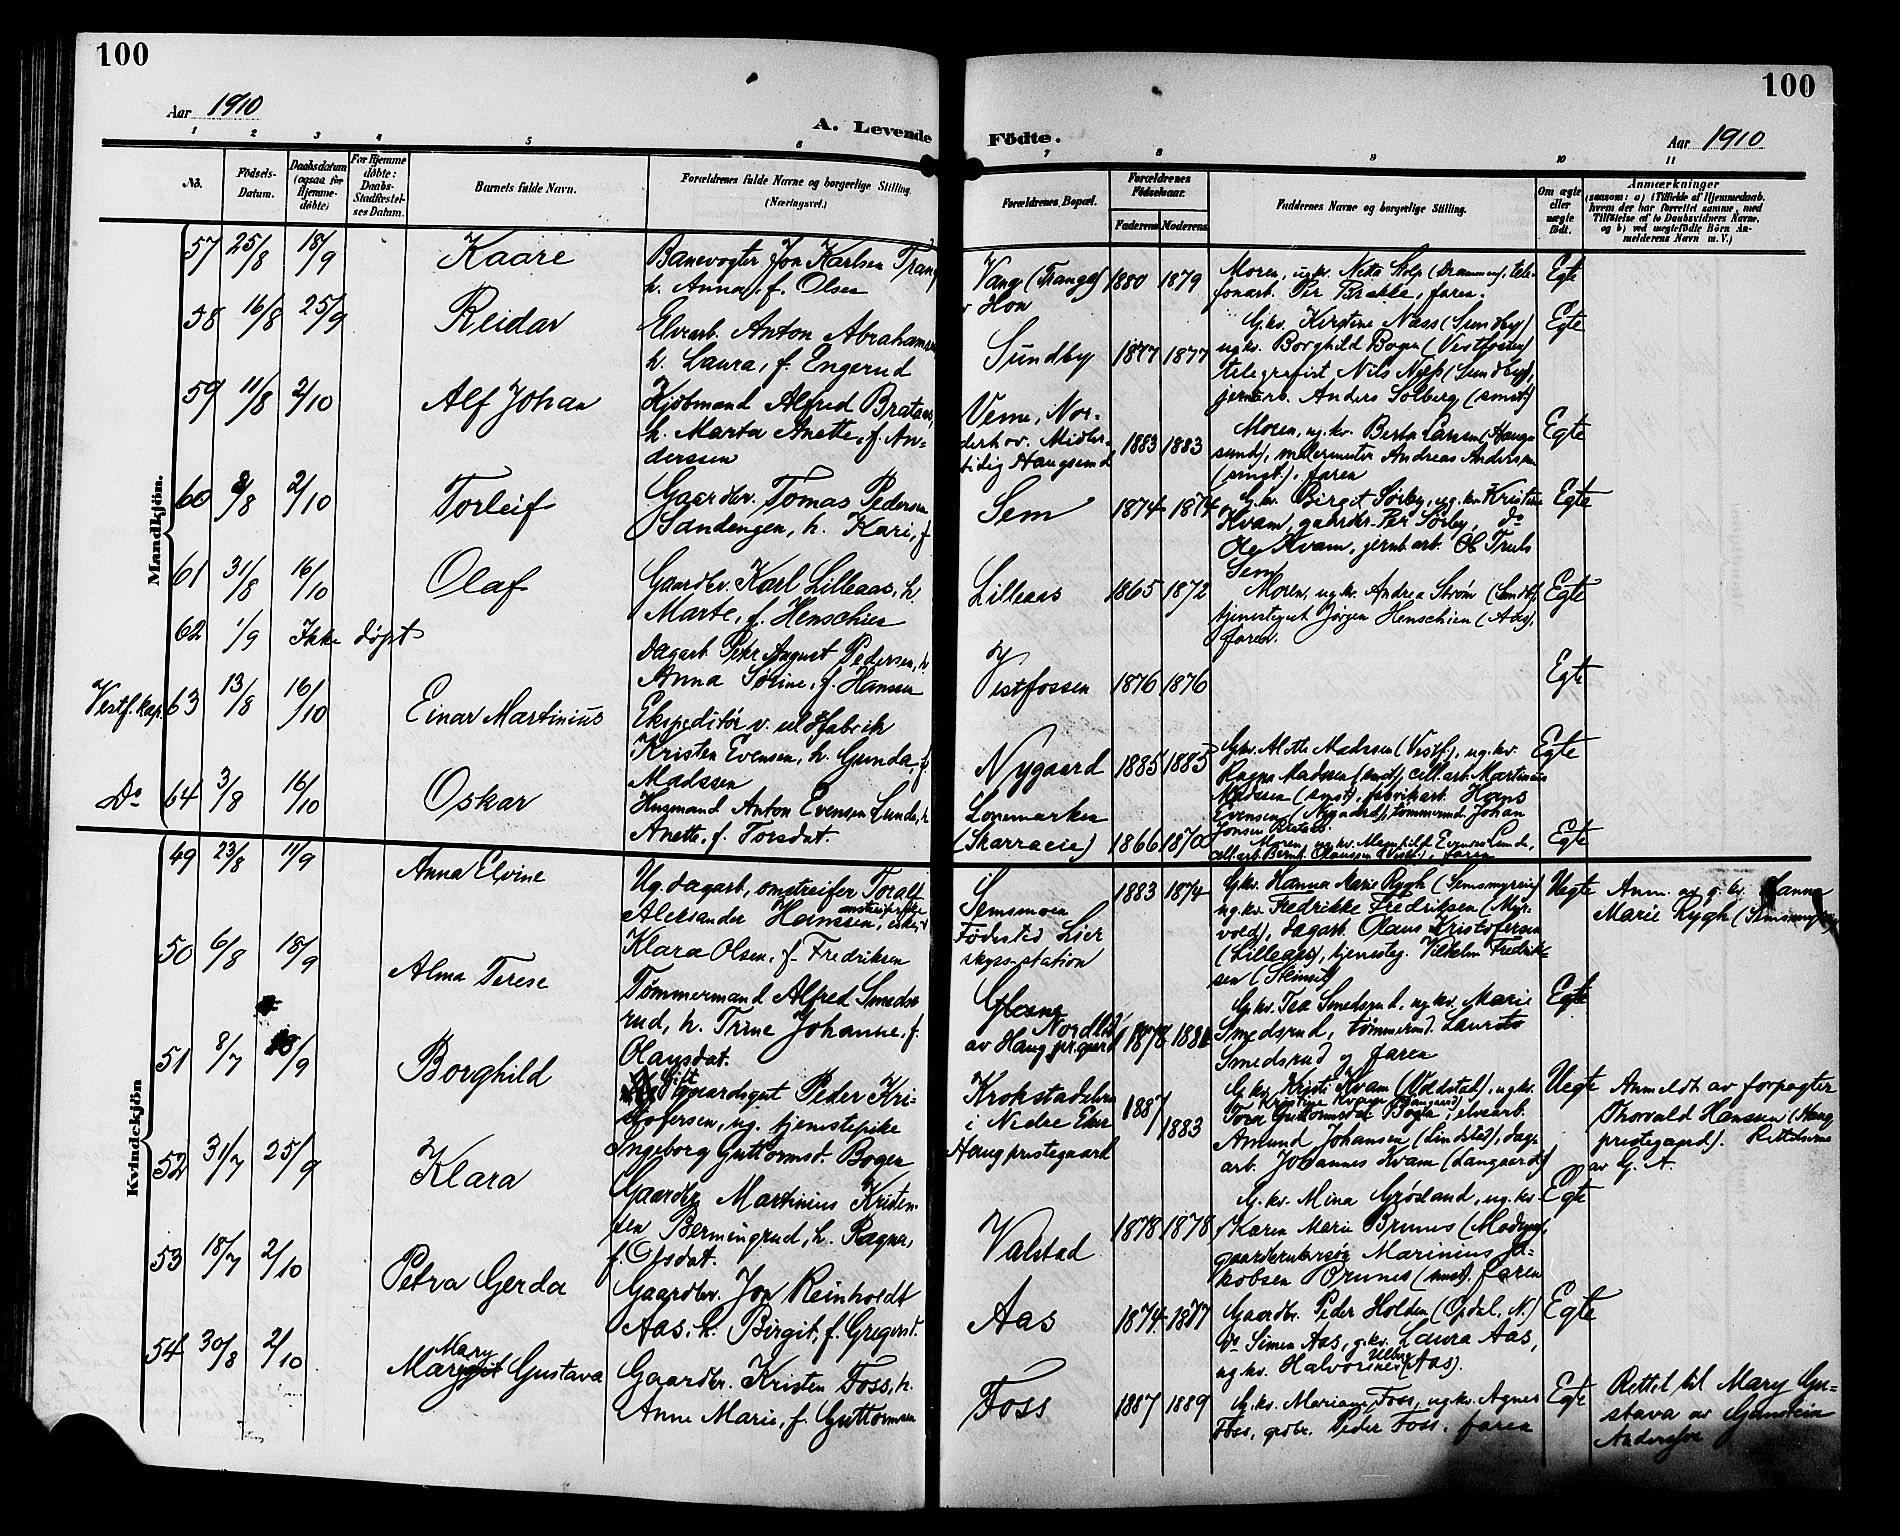 100
100
Aar 1910
A. Levende
Födte.
Aar 1910
1 2 3 4 5 6
7 8 9 10 11
No.
Födsels-
Datum.
Daabsdatum
(ogsaa for
Hjemme-
døbte)
For Hjemme
døbte:
Daabs-
Stadfæstel-
ses Datum.
Barnets fulde Navn.
Forældrenes fulde Navne og borgerlige Stilling.
(Næringsvei.)
Forældrenes Bopæl.
Forældrenes
Födselsaar.
Faderens Moderens
Faddernes Navne og borgerlige Stilling.
Om ægte
eller
uægte
født.
Anmærkninger
(saasom: a) i Tilfælde af Hjemmedaab,
hvem der har forrettet samme, med
Tilföielse af to Daabsvidners Navne,
og b) ved uægtefödte Börn An-
melderens Navn m. V.)
Mandkjön.
57 25/8 18/9 Kaare
Banevogter Jon Karlsen
h. Anna, f. Olsen
v Hon
1880 1879
Moren, ug.kv. (Drammen), tele-
fonarb. Per Brekke, faren.
Egte
58 16/8 25/9 Reidar
Elvearb. Anton Abrahamsen
h. Laura, f. Engerud
Sundby
1877 1877
G.kv. Kirstine Næss (Sundby)
ug.kv. Borghild Bogen (Vestfossen)
telegrafist Nils (Sundby),
jernbarb. Anders Solberg (smst.)
Egte
59 11/8 2/10 Alf Johan
Kjøbmand Alfred Brataas,
h. Marta Anette, f. An-
derssen
Veme, Nor-
derhov. Midler-
tidig Haugsund
1883 1883
Moren, ug.kv. Berta Larsen (Haug-
sund), malermester Andreas Andersen
(smst.), faren
Egte
60 2/10 Torleif
Gaardbr. Tomas Pedersen
Sandengen, h. Kari, f.
Sem
1874 1874
G.kv. Birgit Sørby, ug.kv. Kristine
Kvam, gaardbr. Per Sørby, do
Ole Kvam, jernb.arb. Ol. Truls
Sem
Egte
61 31/8 16/10 Olaf
Gaardbr. Karl Lilleaas, h.
Marte, f. Henschien
Lilleaas
1865 1872
Moren, ug.kv. Andrea Strøm
tjenestegut Jørgen Henschien (Aas),
faren.
Egte
62 1/9 Ikke døpt
Dagarb. Peter August Pedersen, h.
Anna Sørine, f. Hansen
Vestfossen
1876 1876
Egte
Vestf. kap. 63 13/8 16/10 Einar Martinius
Ekspeditør v. uldfabrik
Kristen Evensen, h. Gunda, f.
Madssen
Nygaard
1885 1885
G.kv. Alette Madssen (Vestf.), ug.kv.
Ragna Madssen (smst), cell.arb. Martinius
Madssen (smst), fabrikarb. Hans
Evensen (Nygaard), tømmermd. Johan
Jonsen
Egte
Do 64 3/8 16/10 Oskar
Husmand Anton Evensen Lunde, h.
Anette, f. Torsdat.
Lonemarken
(Skarraeie)
1866 1870
Moren, ug.kv. Magnhild Evensen Lunde,
cell.arb. Bernh. Olaussen (Vestf.), faren
Egte
Kvindekjön
49 23/8 11/9 Anna Elvine
Ug. dagarb., omstreifer Toralf
Aleksander Heinssen, omstreiferske
Klara Olsen, f. Fredriksen
Semsmoen
Fødested Lier
skyss-station
1883 1874
G.kv. Hanna Marie Rygh (Semsmyren),
ug.kv. Fredrikke Fredriksen (Myr-
vold), dagarb. Olaus Kristofersen
(Lilleaas), tjenesteg. Vilhelm Fredrik-
sen
Uegte
Anm. av g. kv. Hanna
Marie Rygh (Semsmyren)
50 6/8 18/9 Alma Terese
Tømmermand Alfred Smeds-
rud, h. Trine Johanne, f.
Olausdat.
av Haug pr.gaard
1878
G.kv. Tea Smedsrud, ug.kv. Marie
Smedsrud, tømmermd. Laurits
Smedsrud og faren
Egte
51 8/7 18/9 Borghild
Gift gaardsgut Peder Kri-
stofersen, ug. tjenestepike
Ingeborg Guttormsd. Bogen
Krokstadelven
i Nedre Eker
Haug prestegaard
1887 1883
G.kv. Kristi Kvam, ug.kv.
Kristine Kvam (Langaard)
Tora Guttormsdat. Bogen, elvearb.
Amund Johansen (Lindsted), dag-
arb. Johannes Kvam (Langaard)
Uegte
Anmeldt av forpagter
Thorvald Hansen (Haug
prestegaard). Rettelserne
av G. A.
52 31/7 25/9 Klara
Gaardbr. Martinius Kristen-
sen Bermingrud, h. Ragna,
f. Olsdat.
Valstad
1878 1878
G.kv. Mina Grøsland, ug.kv.
Karen Marie Brunes
gaardbrukersøn Marinius Ja-
kobsen Brunes (smst). faren
Egte
53 18/7 2/10 Petra Gerda
Gaardbr. Jon Reinholdt
Aas, h. Birgit, f. Gregersd.
Aas
1874 1877
Gaardbr. Peder Holden (Opdal, N.)
Do Simen Aas, g.kv. Laura Aas,
ug.kv. Halvorine (Aas).
Egte
54 30/8 2/10 Mary
Margit Gustava
Gaardbr. Kristen Foss, h.
Anne Marie, f. Guttormsen
Foss
1887 1889
G.kv. Mariane Foss, ug.kv. Agnes
Foss, grdbr. Peder Foss. faren
Egte
Rettet til Mary Gu-
stava av Gunstein
Anderssen